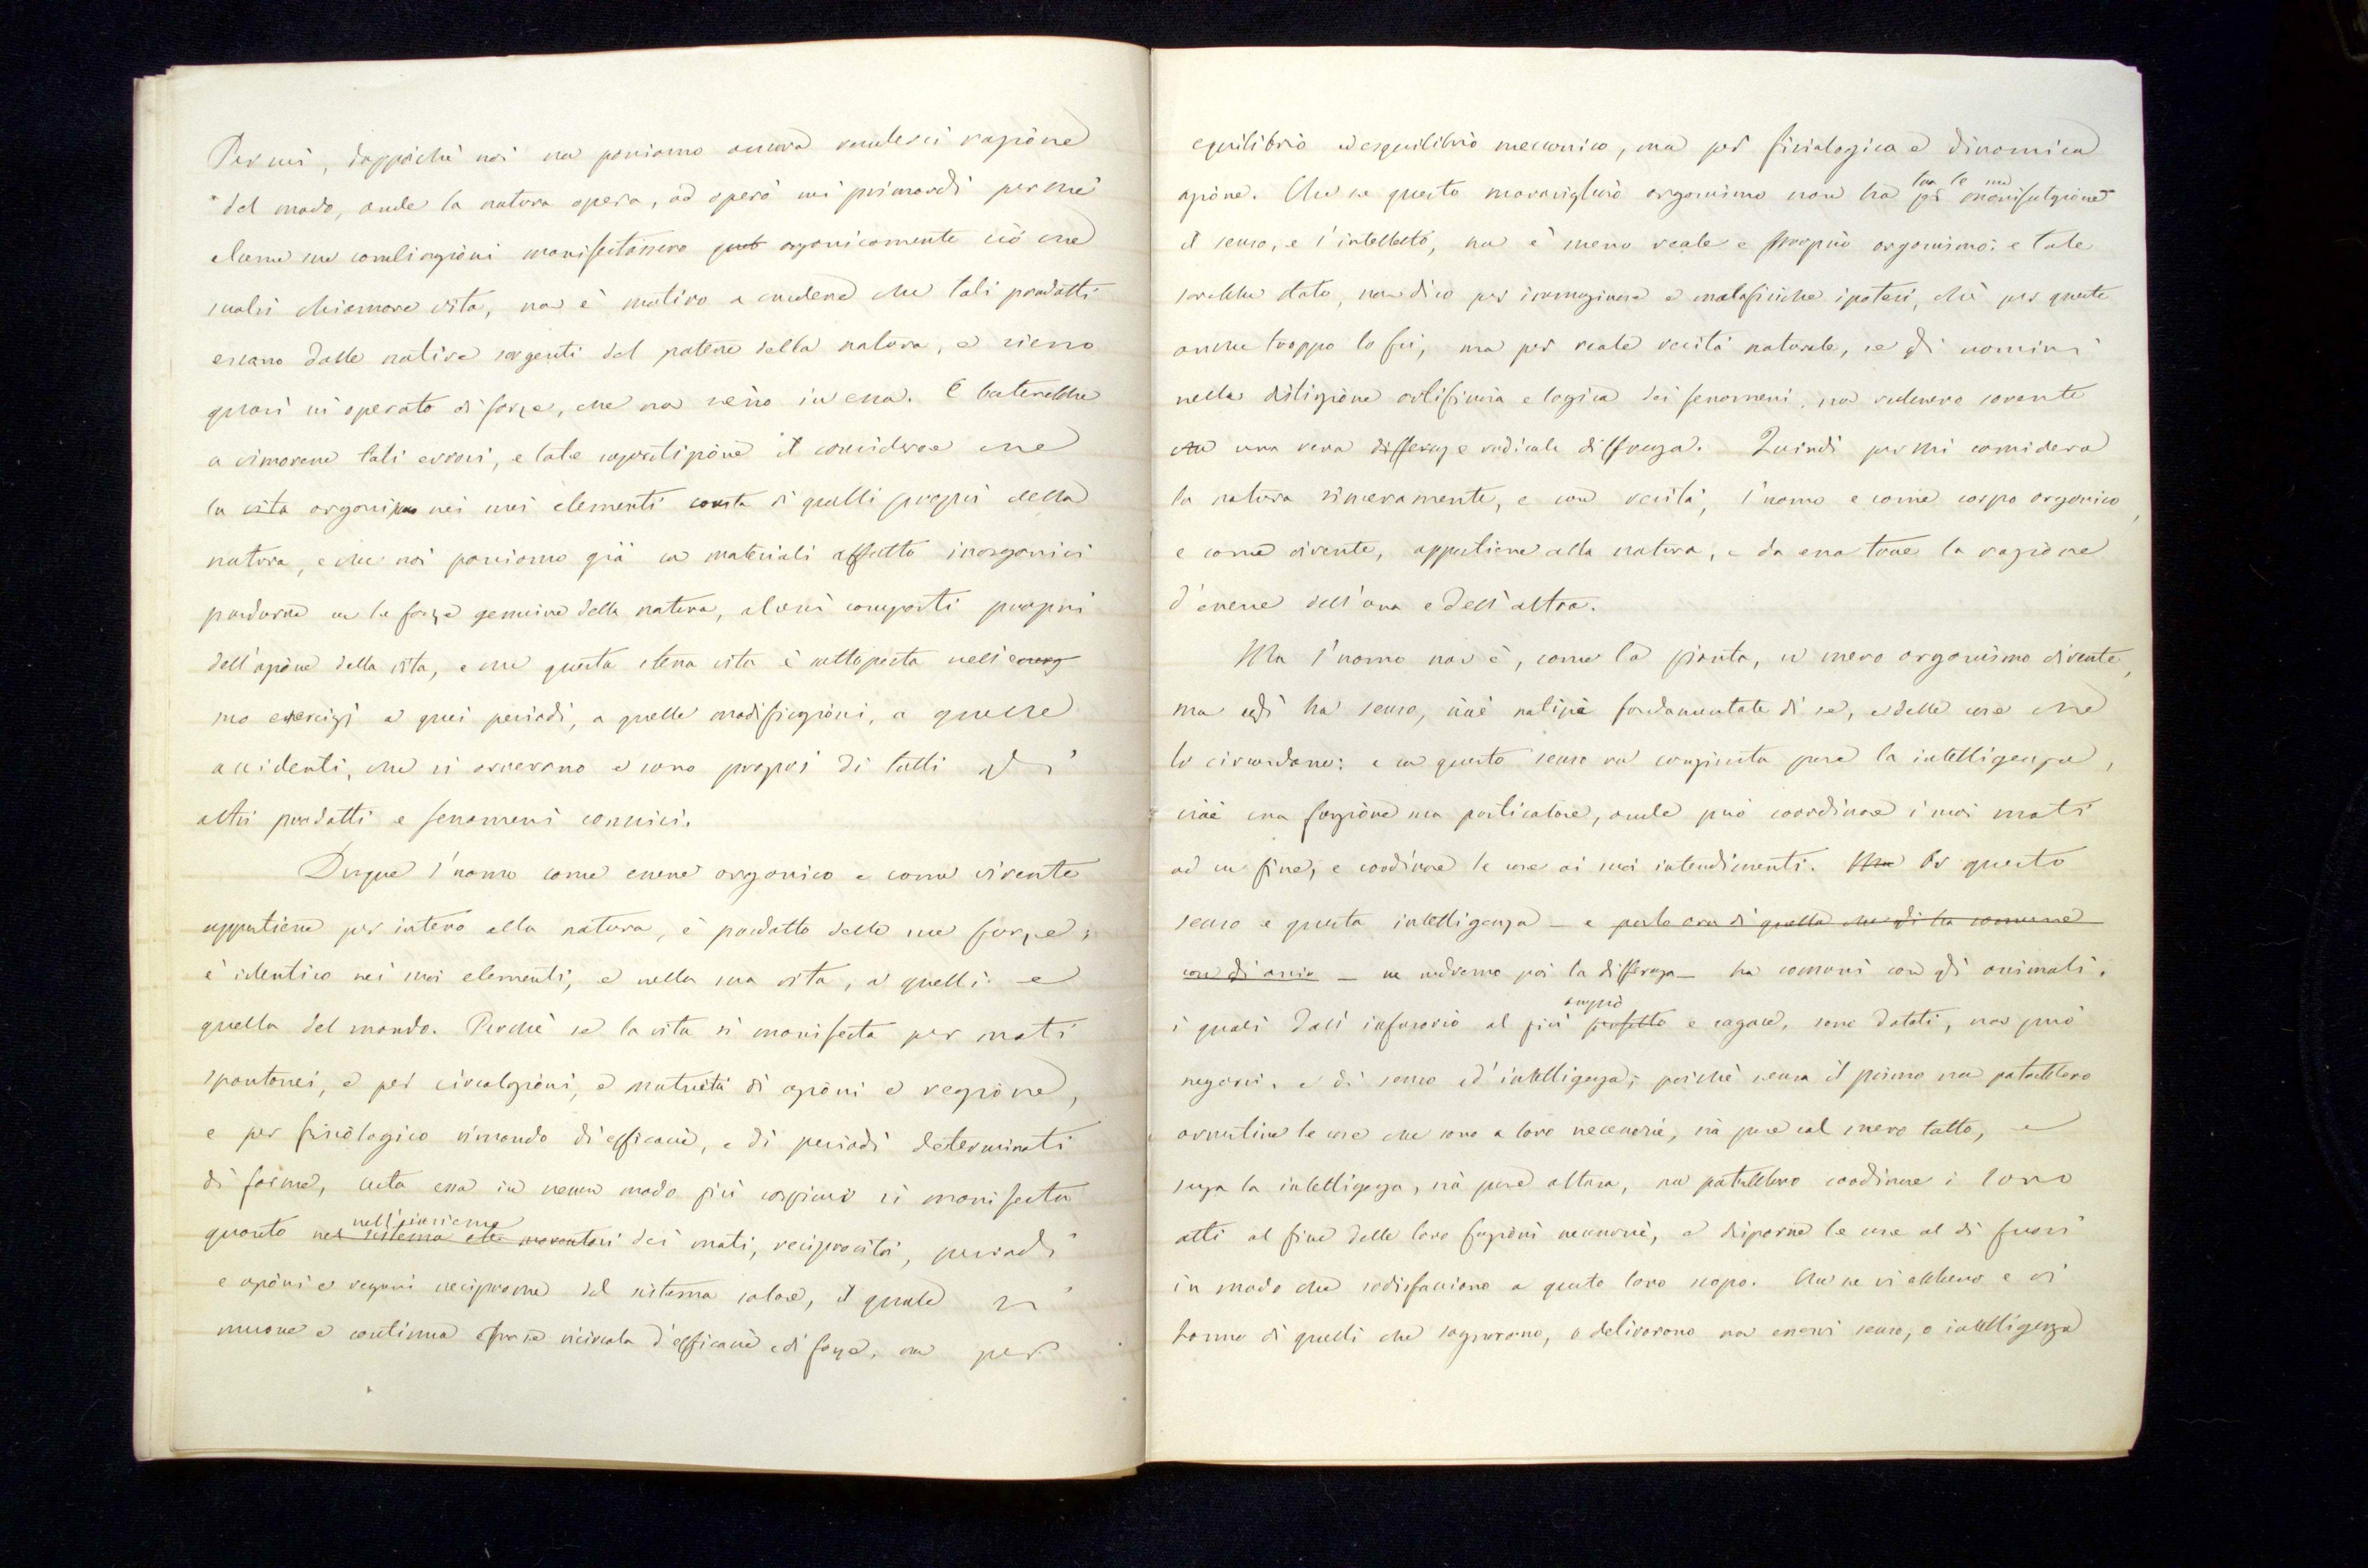 Per cui, dappoichè noi non possiamo ancora renderci ragione
del modo, onde la natura opera, ed operò nei primordi perchè
alcune sue combinazioni manifestassero organicamente ciò che
suolsi chiamare vita, non è motivo a credere che tali prodotti
escano dalle native sorgenti del potere della natura, e sieno
quasi un operato di forze, che non sieno in essa. E basterebbe
a rimovere tali errori, e tale superstizione il considerare che
la vita organica nei suoi elementi consta di quelli proprii della
natura, e che noi possiamo già con materiali affatto inorganici
produrre con le forze genuine della natura, alcuni composti proprii
dell'azione della vita, e che questa stessa vita è sottoposta nell'energ
suo esercizi a quei periodi, a quelle modificazioni, a quelle
accidenti, che si osservano e sono proprii di tutti gli
altri prodotti e fenomeni cosmici.
Dunque l'uomo come essere organico e come vivente
appartiene per intero alla natura, è prodotto delle sue forze;
è identico nei suoi elementi, e nella sua vita, a quelli e
quella del mondo. Perchè se la vita si manifesta per moti
spontanei, e per circolazioni, e mutuità di azioni e reazione,
e per fisiologico rimando di efficacie, e di periodi determinati
di forme, certo essa in nessun modo più cospicuo si manifesta
nell'insieme
quanto nel sistema dei moti, reciprocità, periodi
e azioni e reazioni reciproche del sistema solare, il quale si
muove e continua vicenda d'efficacie e di forze, non per
equilibrio e disquilibrio meccanico, ma per fisiologica e dinamica
azione. Che se questo maraviglioso organismo non ha tra le sue manifestazione
il senso, e l'intelletto, non è meno reale e proprio organismo: e tale
sarebbe stato, non dico per immaginarie e metafisiche ipotesi, chè per queste
anche troppo lo fu, ma per reale verità naturale, se gli uomini
nella distinzione artificiosa e logica dei fenomeni, non vedessero sovente
una vera differenz e radicale differenza. Quindi per chi considera
la natura sinceramente, e con verità, l'uomo e come corpo organico,
e come vivente, appartiene alla natura, e da essa trae la ragione
d'essere dell'una e dell'altra.
Ma l'uomo non è, come la pianta, un mero organismo vivente,
ma egli ha senso, cioè notizia fondamentale di se, e delle cose che
lo circondano: e con questo senso va congiunta pure la intelligenza,
cioè una funzione sua particolare, onde può coordinare i suoi moti
ad un fine, e coordinare le cose ai suoi intendimenti. Ma Or questo
senso e questa intelligenza – e parlo ora di quella che gli ha comune
con gli anim – ne vedremo poi la differenza – ha comuni con gli animali,
i quali dall'infusorio al più perfetto e sagace, sono dotati, non può
negarsi, e di senso ed'intelligenza; poichè senza il primo non potrebbero
avvertire le cose che sono a loro necessarie, sia pure col mero tatto, e
senza la intelligenza, sia pure oscura, non potrebbero coordinare i loro
atti al fine delle loro funzioni necessarie, e disporre le cose al di fuori
in modo che sodisfacciano a questo loro scopo. Che se vi ebbero e vi
hanno di quelli che sognarono, o delirarono non esservi senso, o intelligenza